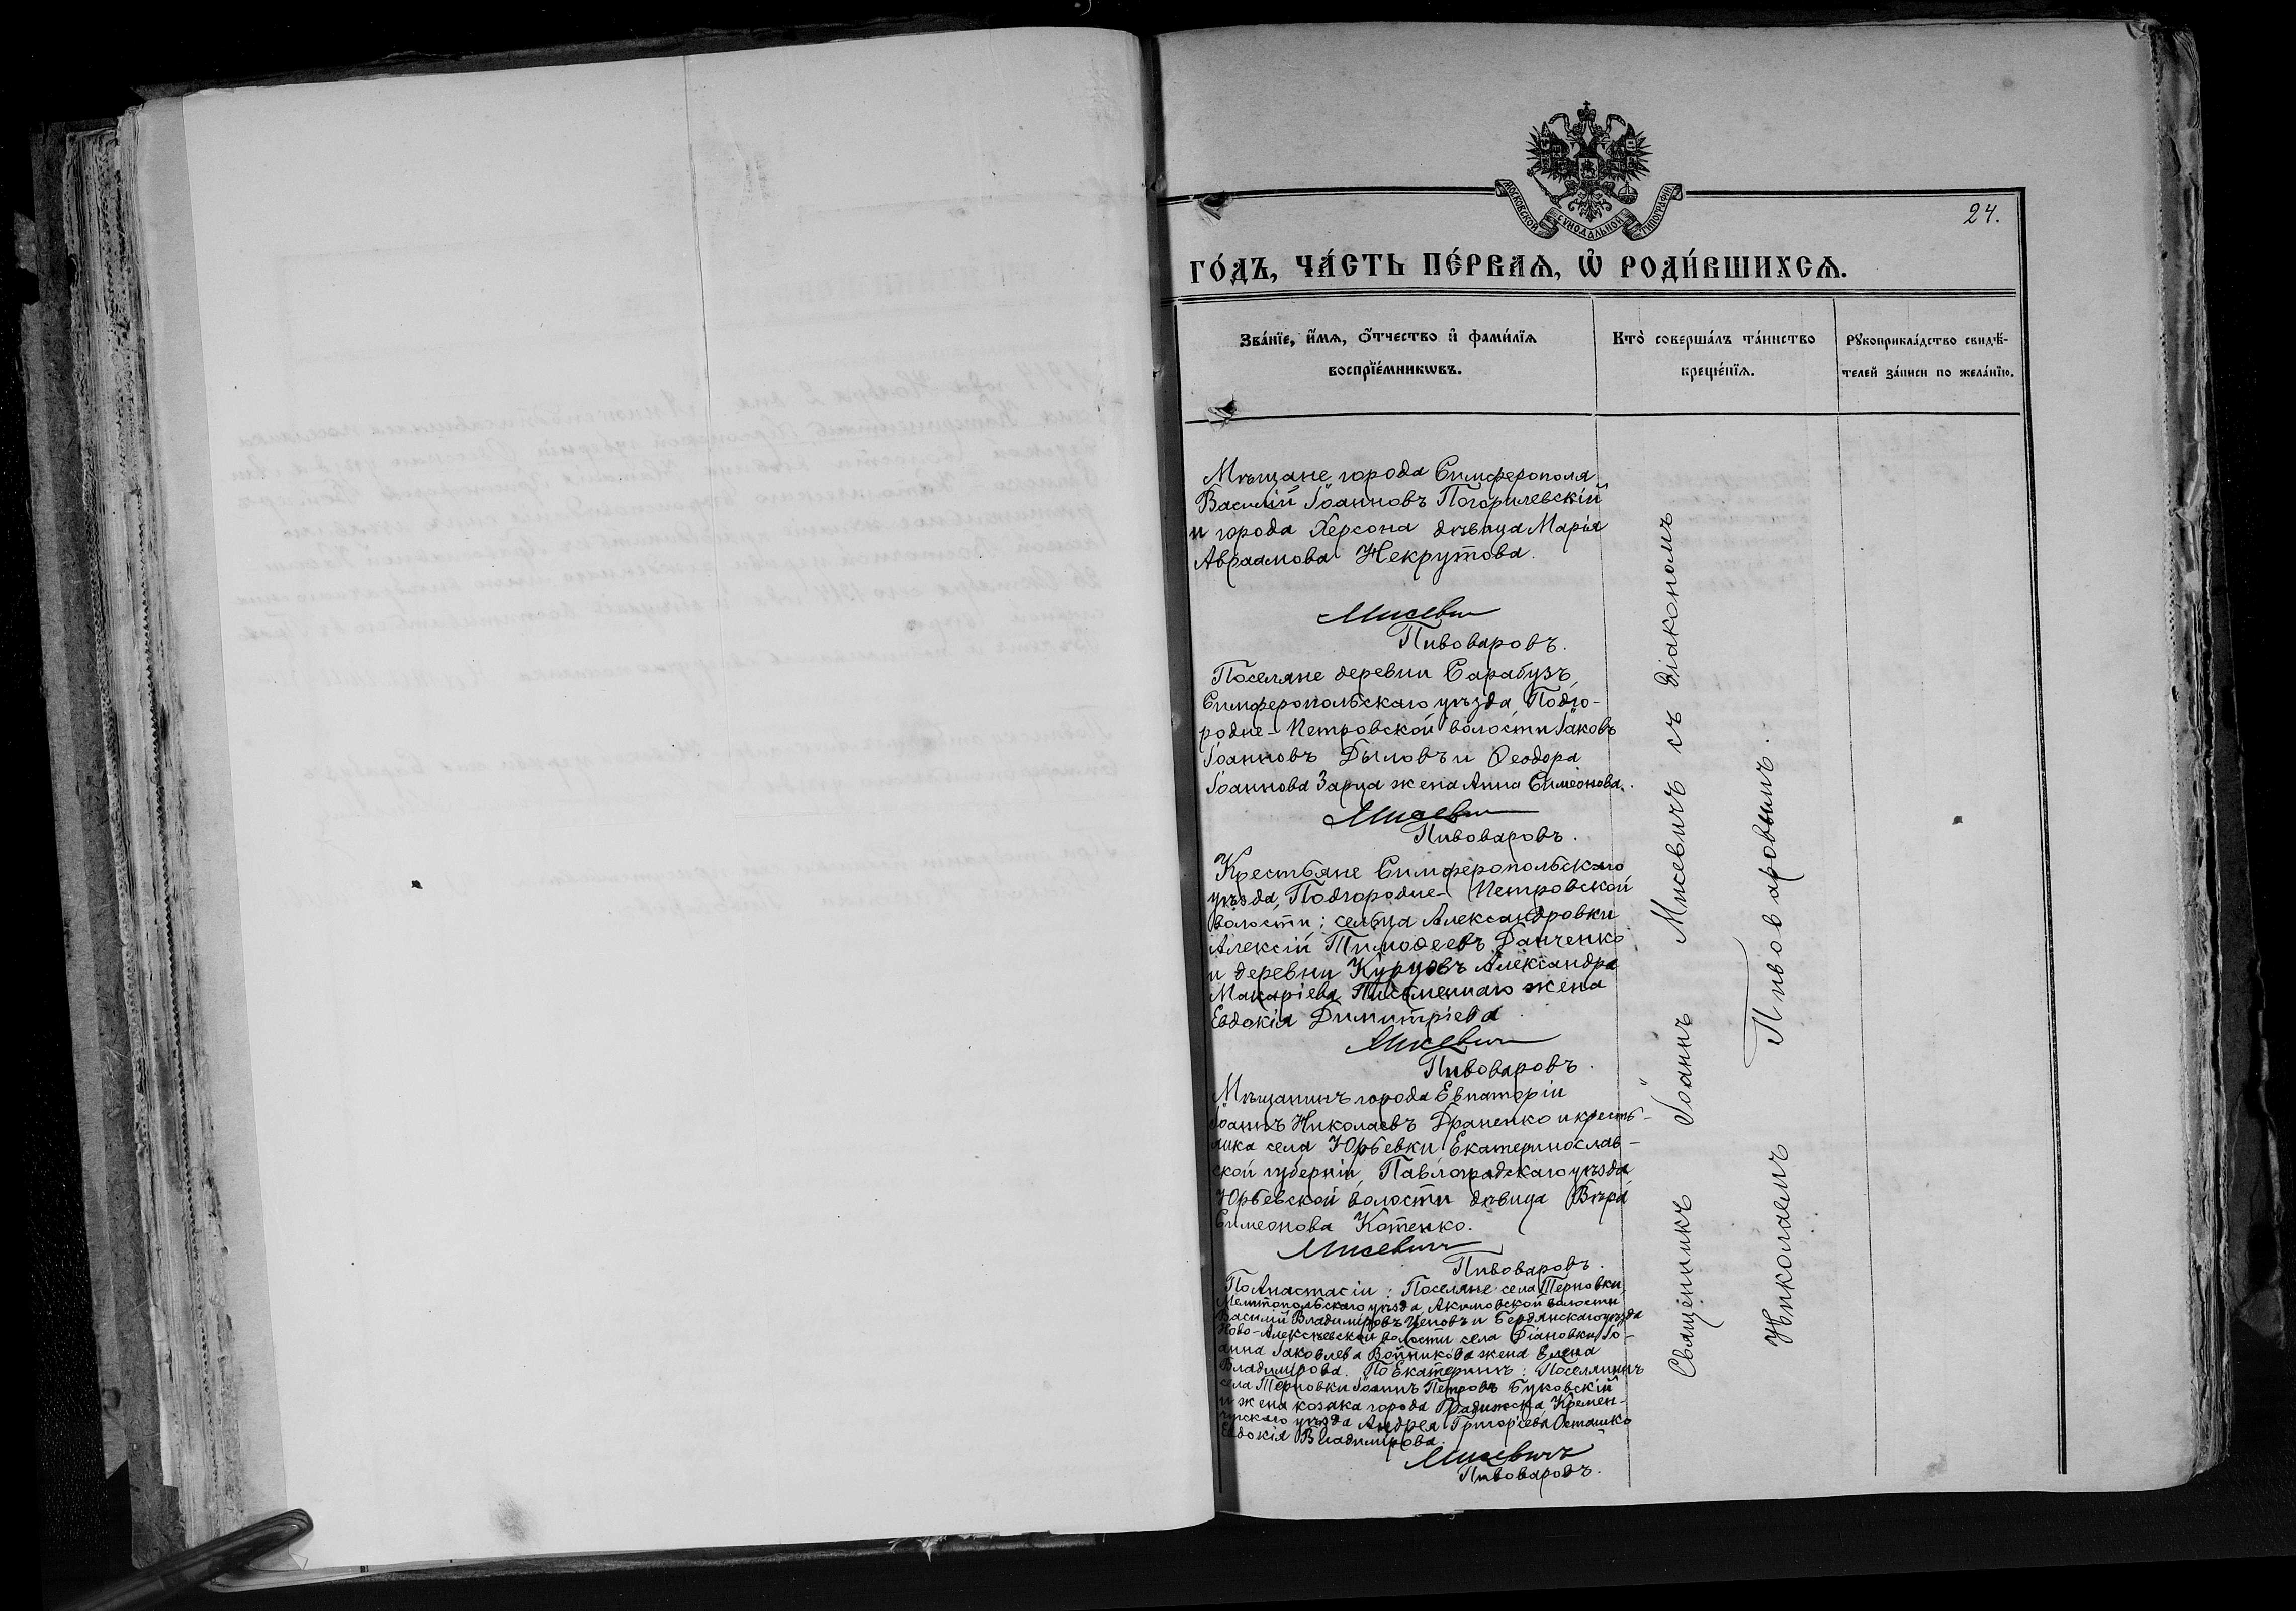 МОСКОВСКОЙ СѴНОДАЛЬНОЙ ТИПОГРАФІИ
24.
ГО́ДЪ, ЧА́СТЬ ПЕ́РВАѦ, Ѡ҆ РОДИ́ВШИХСѦ.
Зва́нїе, и҆́мѧ, ѻ҆́тчество и҆ фами́лїѧ
воспрїе́мникѡвъ.
Кто̀ соверша́лъ та́инство
креще́нїѧ.
Рꙋкоприкла́дство свидѣ́-
телей за́писи по жела́нїю.
Мѣщане города Симферополя
Василій Іоанновъ Погорилевскій
и города Херсона дѣвица Марія
Авраамова Некрутова.
Мисевич
Пивоваровъ.
Поселяне деревни Сарабузъ,
Симферопольскаго уѣзда, Подго-
родне-Петровской волости Іаковъ
Іоанновъ Дыловъ и Ѳеодора
Іоаннова Зарца жена Анна Симеонова.
Мисевич
Пивоваровъ.
Крестьяне Симферопольскаго
уѣзда, Подгородне-Петровской
волости; сельца Александровки
Алексій Тимоѳеевъ Данченко
и деревни Курцовъ Александра
Макаріева Письменнаго жена
Евдокія Димитріева
Мисевич
Пивоваровъ.
Мѣщанинъ города Евпаторіи
Іоаннъ Николаевъ Драненко и кресть-
янка села Юрьевки, Екатеринослав-
ской губерніи, Павлоградскаго уѣзда
Юрьевской волости дѣвица Вѣра
Симеонова Котенко.
Мисевичъ
Пивоваровъ.
По Анастасіи: Поселяне села Терновки,
Мелитопольскаго уѣзда, Акимовской волости
Василій Владиміровъ Цеповъ и Бердянскаго уѣзда
Ново-Алексѣевской волости села Діановки Іо-
анна Іаковлева Войникова жена Елена
Владимірова. По Екатеринѣ: Поселянинъ
села Терновки Іоаннъ Петровъ Буковскій
и жена козака города Градижска, Кремен-
чугскаго уѣзда Андрея Григорьева Осташко
Евдокія Владимірова.
Мисевичъ
Пивоваровъ.
Священникъ Іоаннъ Мисевичъ съ діакономъ
Николаемъ Пивоваровымъ.